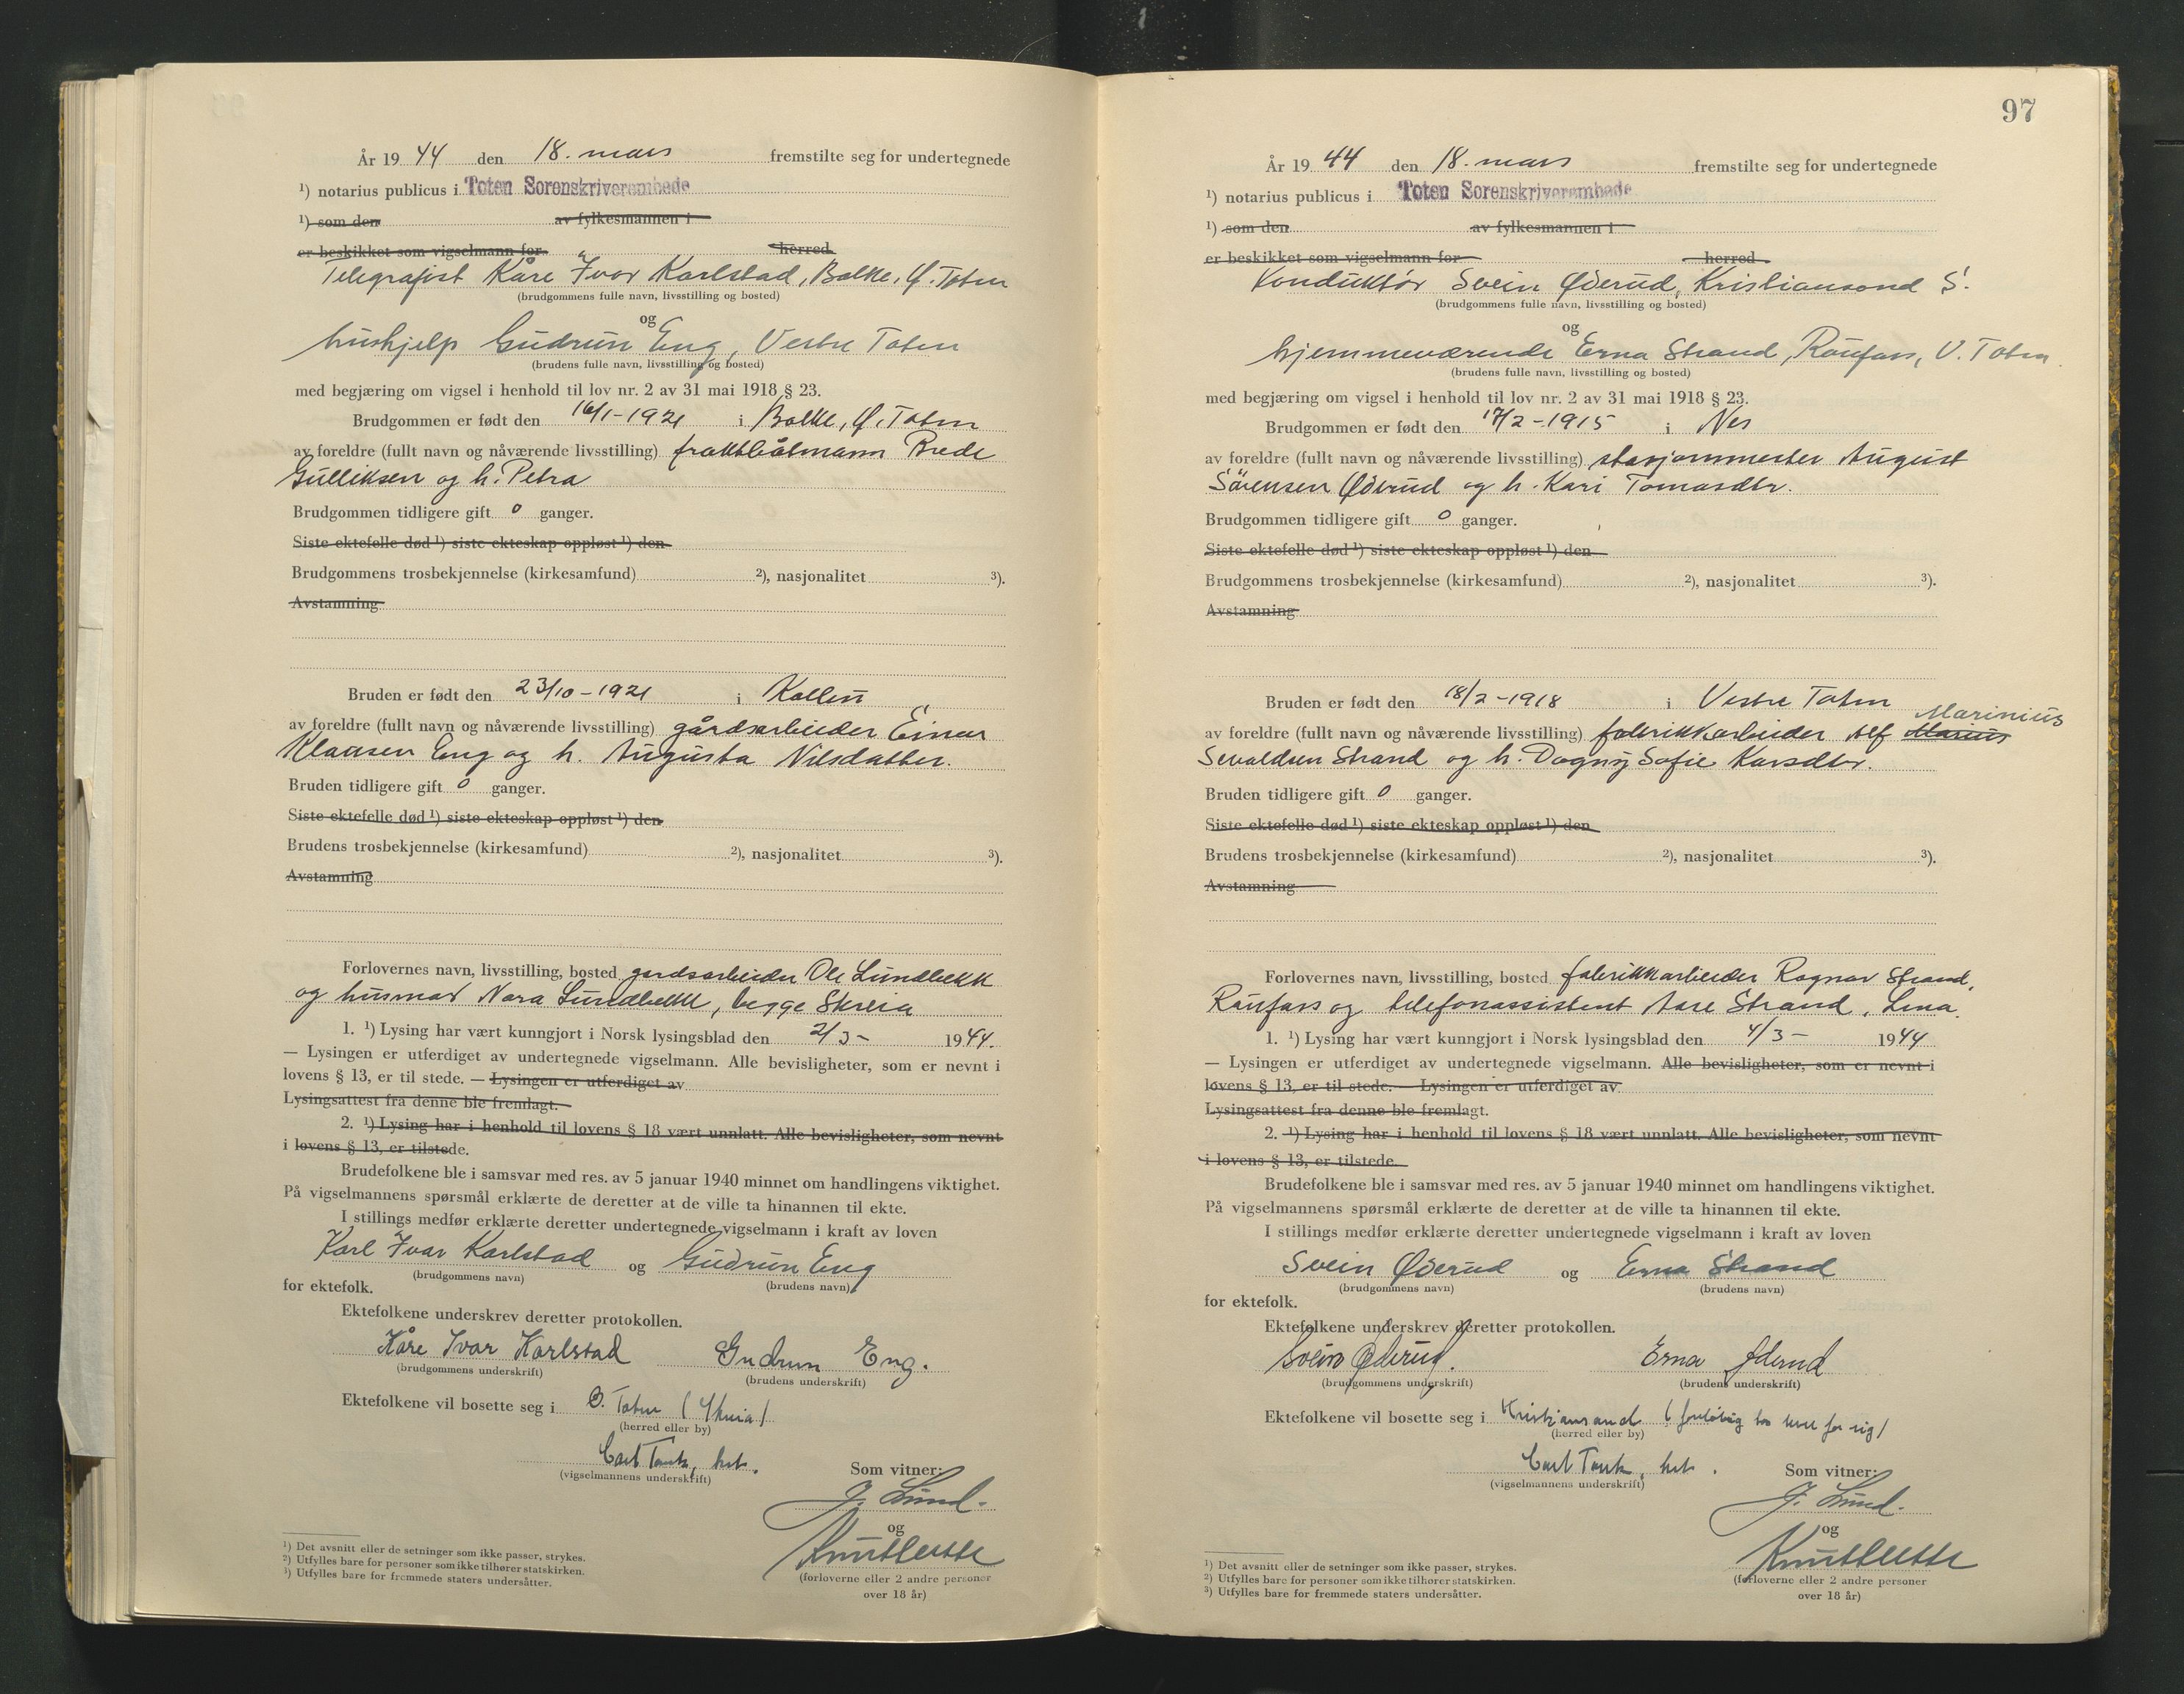 År 1944 den 18. mars fremstilte seg for undertegnede
¹) notarius publicus i Toten Sorenskriverembede
¹) som den av fylkesmannen i
er beskikket som vigselmann for herred
Telegrafist Kåre Ivar Karlstad, Balke, Ø. Toten
(brudgommens fulle navn, livsstilling og bosted)
og
hushjelp Gudrun Eng, Vestre Toten
(brudens fulle navn, livsstilling og bosted)
med begjæring om vigsel i henhold til lov nr. 2 av 31 mai 1918 § 23.
Brudgommen er født den 16/1-1921 i Balke, Ø. Toten
av foreldre (fullt navn og nåværende livsstilling) fraktbåtmann Brede
Gulliksen og h. Petra
Brudgommen tidligere gift 0 ganger.
Siste ektefelle død ¹) siste ekteskap oppløst ¹) den
Brudgommens trosbekjennelse (kirkesamfund) ²), nasjonalitet ³).
Avstamning
Bruden er født den 23/10-1921 i Kolbu
av foreldre (fullt navn og nåværende livsstilling) gårdsarbeider Einar
Klausen Eng og h. Augusta Nilsdatter.
Bruden tidligere gift 0 ganger.
Siste ektefelle død ¹) siste ekteskap oppløst ¹) den
Brudens trosbekjennelse (kirkesamfund) ²), nasjonalitet ³).
Avstamning
Forlovernes navn, livsstilling, bosted gardsarbeider Ole Lundbekk
og husmor Nora Lundbekk, begge Skreia
1. ¹) Lysing har vært kunngjort i Norsk lysingsblad den 2/3- 1944.
— Lysingen er utferdiget av undertegnede vigselmann. Alle bevisligheter, som er nevnt i
lovens § 13, er til stede. — Lysingen er utferdiget av
Lysingsattest fra denne ble fremlagt.
2. ¹) Lysing har i henhold til lovens § 18 vært unnlatt. Alle bevisligheter, som nevnt
i lovens § 13, er tilstede.
Brudefolkene ble i samsvar med res. av 5 januar 1940 minnet om handlingens viktighet.
På vigselmannens spørsmål erklærte de deretter at de ville ta hinannen til ekte.
I stillings medfør erklærte deretter undertegnede vigselmann i kraft av loven
Karl Ivar Karlstad og Gudrun Eng
(brudgommens navn) (brudens navn)
for ektefolk.
Ektefolkene underskrev deretter protokollen.
Kåre Ivar Karlstad Gudrun Eng.
(brudgommens underskrift) (brudens underskrift)
Ektefolkene vil bosette seg i Ø. Toten (Skreia)
(herred eller by)
Carl Tank,
(vigselmannens underskrift) Som vitner:
J. Lund.
og
(forloverne eller 2 andre personer
over 18 år)
¹) Det avsnitt eller de setninger som ikke passer, strykes.
²) Utfylles bare for personer som ikke tilhører statskirken.
³) Utfylles bare for fremmede staters undersåtter.
97
År 1944 den 18. mars fremstilte seg for undertegnede
¹) notarius publicus i Toten Sorenskriverembede
¹) som den av fylkesmannen i
er beskikket som vigselmann for herred
Konduktør Svein Øderud, Kristiansand S.
(brudgommens fulle navn, livsstilling og bosted)
og
hjemmeværende Erna Strand, Raufoss, V. Toten
(brudens fulle navn, livsstilling og bosted)
med begjæring om vigsel i henhold til lov nr. 2 av 31 mai 1918 § 23.
Brudgommen er født den 17/2-1915 i Nes
av foreldre (fullt navn og nåværende livsstilling) stasjonsmester August
Sörensen Øderud og h. Kari Tomasdtr.
Brudgommen tidligere gift 0 ganger.
Siste ektefelle død ¹) siste ekteskap oppløst ¹) den
Brudgommens trosbekjennelse (kirkesamfund) ²), nasjonalitet ³).
Avstamning
Bruden er født den 18/2-1918 i Vestre Toten
av foreldre (fullt navn og nåværende livsstilling) fabrikkarbeider Alf Marius Marinius
Sevaldsen Strand og h. Dagny Sofie Larsdtr.
Bruden tidligere gift 0 ganger.
Siste ektefelle død ¹) siste ekteskap oppløst ¹) den
Brudens trosbekjennelse (kirkesamfund) ²), nasjonalitet ³).
Avstamning
Forlovernes navn, livsstilling, bosted fabrikkarbeider Ragnar Strand,
Raufoss og telefonassistent Aase Strand, Lena.
1. ¹) Lysing har vært kunngjort i Norsk lysingsblad den 4/3- 1944
— Lysingen er utferdiget av undertegnede vigselmann. Alle bevisligheter, som er nevnt i
lovens § 13, er til stede. — Lysingen er utferdiget av
Lysingsattest fra denne ble fremlagt.
2. ¹) Lysing har i henhold til lovens § 18 vært unnlatt. Alle bevisligheter, som nevnt
i lovens § 13, er tilstede.
Brudefolkene ble i samsvar med res. av 5 januar 1940 minnet om handlingens viktighet.
På vigselmannens spørsmål erklærte de deretter at de ville ta hinannen til ekte.
I stillings medfør erklærte deretter undertegnede vigselmann i kraft av loven
Svein Øderud og Erna Strand
(brudgommens navn) (brudens navn)
for ektefolk.
Ektefolkene underskrev deretter protokollen.
Svein Øderud. Erna Øderud
(brudgommens underskrift) (brudens underskrift)
Ektefolkene vil bosette seg i Kristiansand (foreløbig bor hver for sig)
(herred eller by)
Carl Tank,
(vigselmannens underskrift) Som vitner:
J. Lund.
og
(forloverne eller 2 andre personer
over 18 år)
¹) Det avsnitt eller de setninger som ikke passer, strykes.
²) Utfylles bare for personer som ikke tilhører statskirken.
³) Utfylles bare for fremmede staters undersåtter.